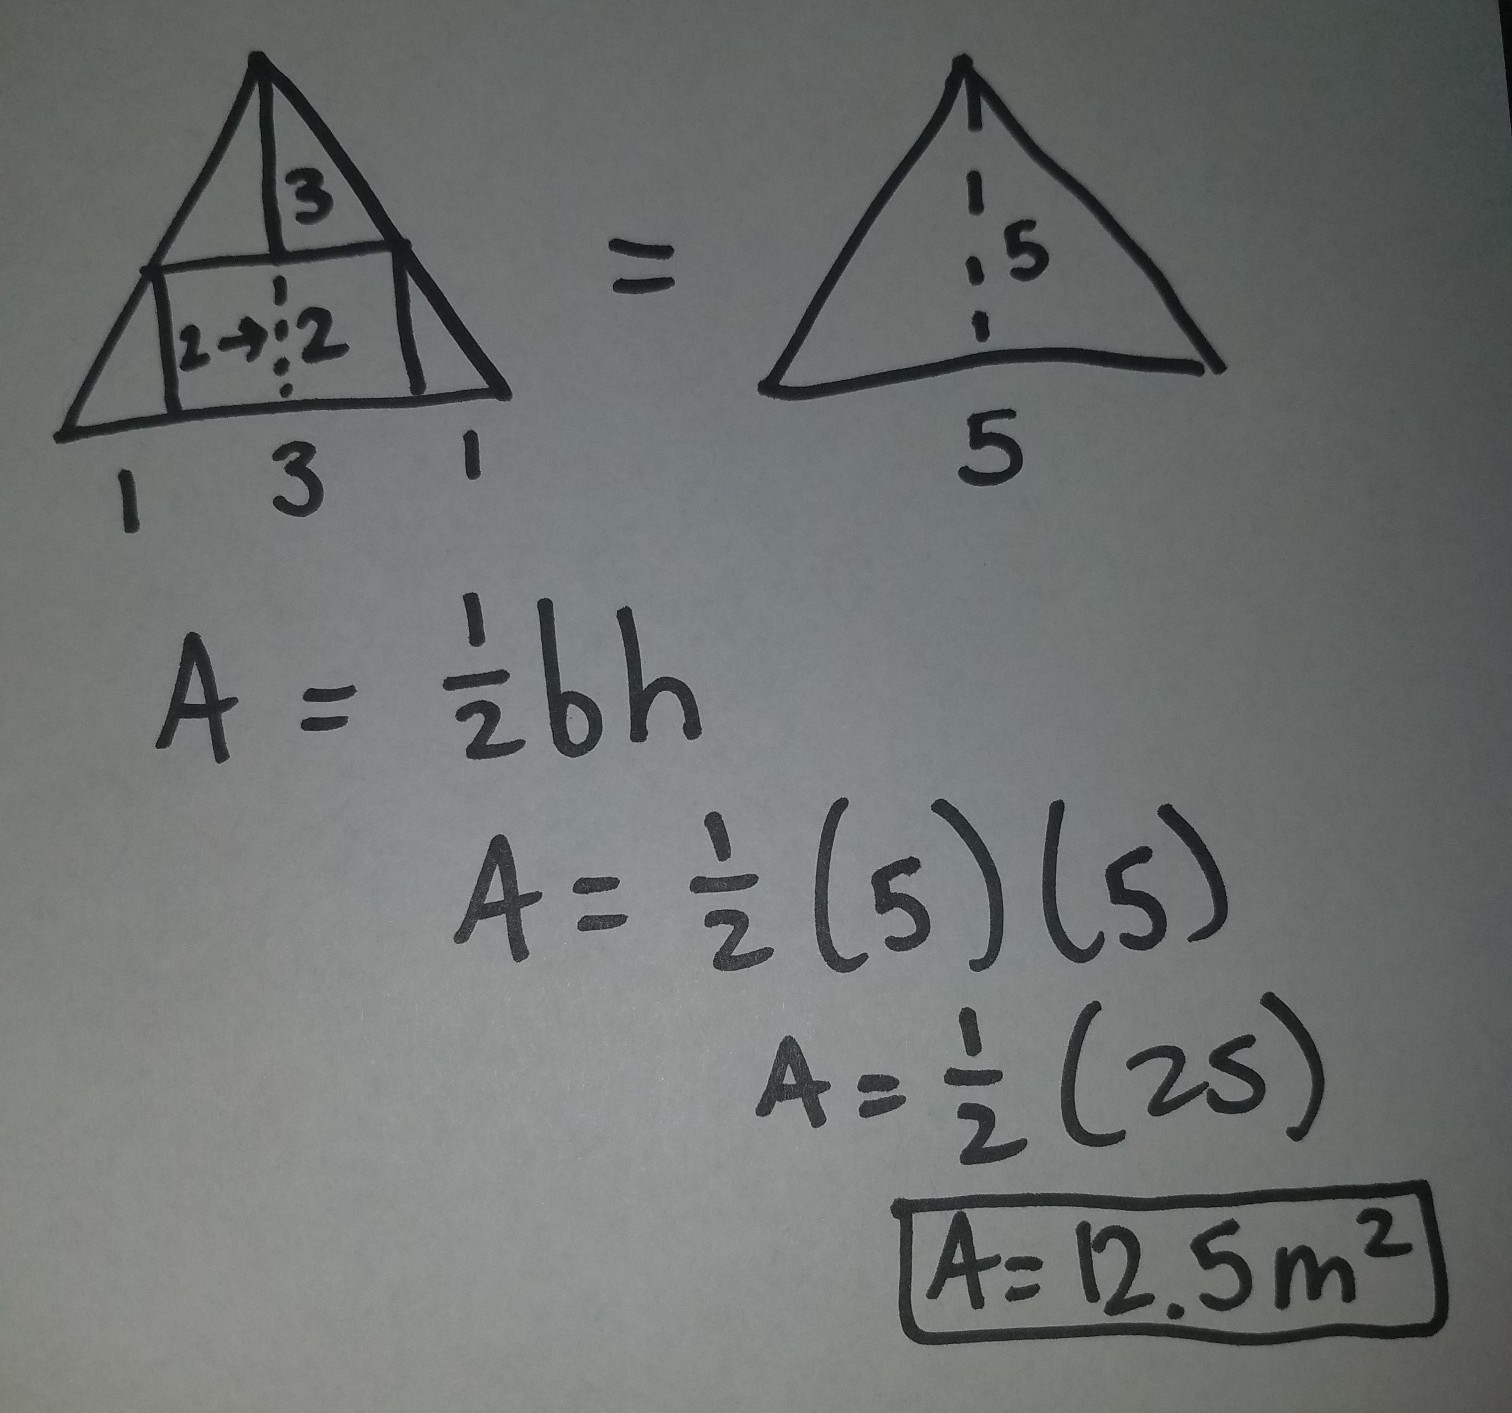 3
2→ 2
=
5
1 3 1
5
A = 1/2 bh
A = 1/2 (5)(5)
A = 1/2 (25)
A = 12.5m²